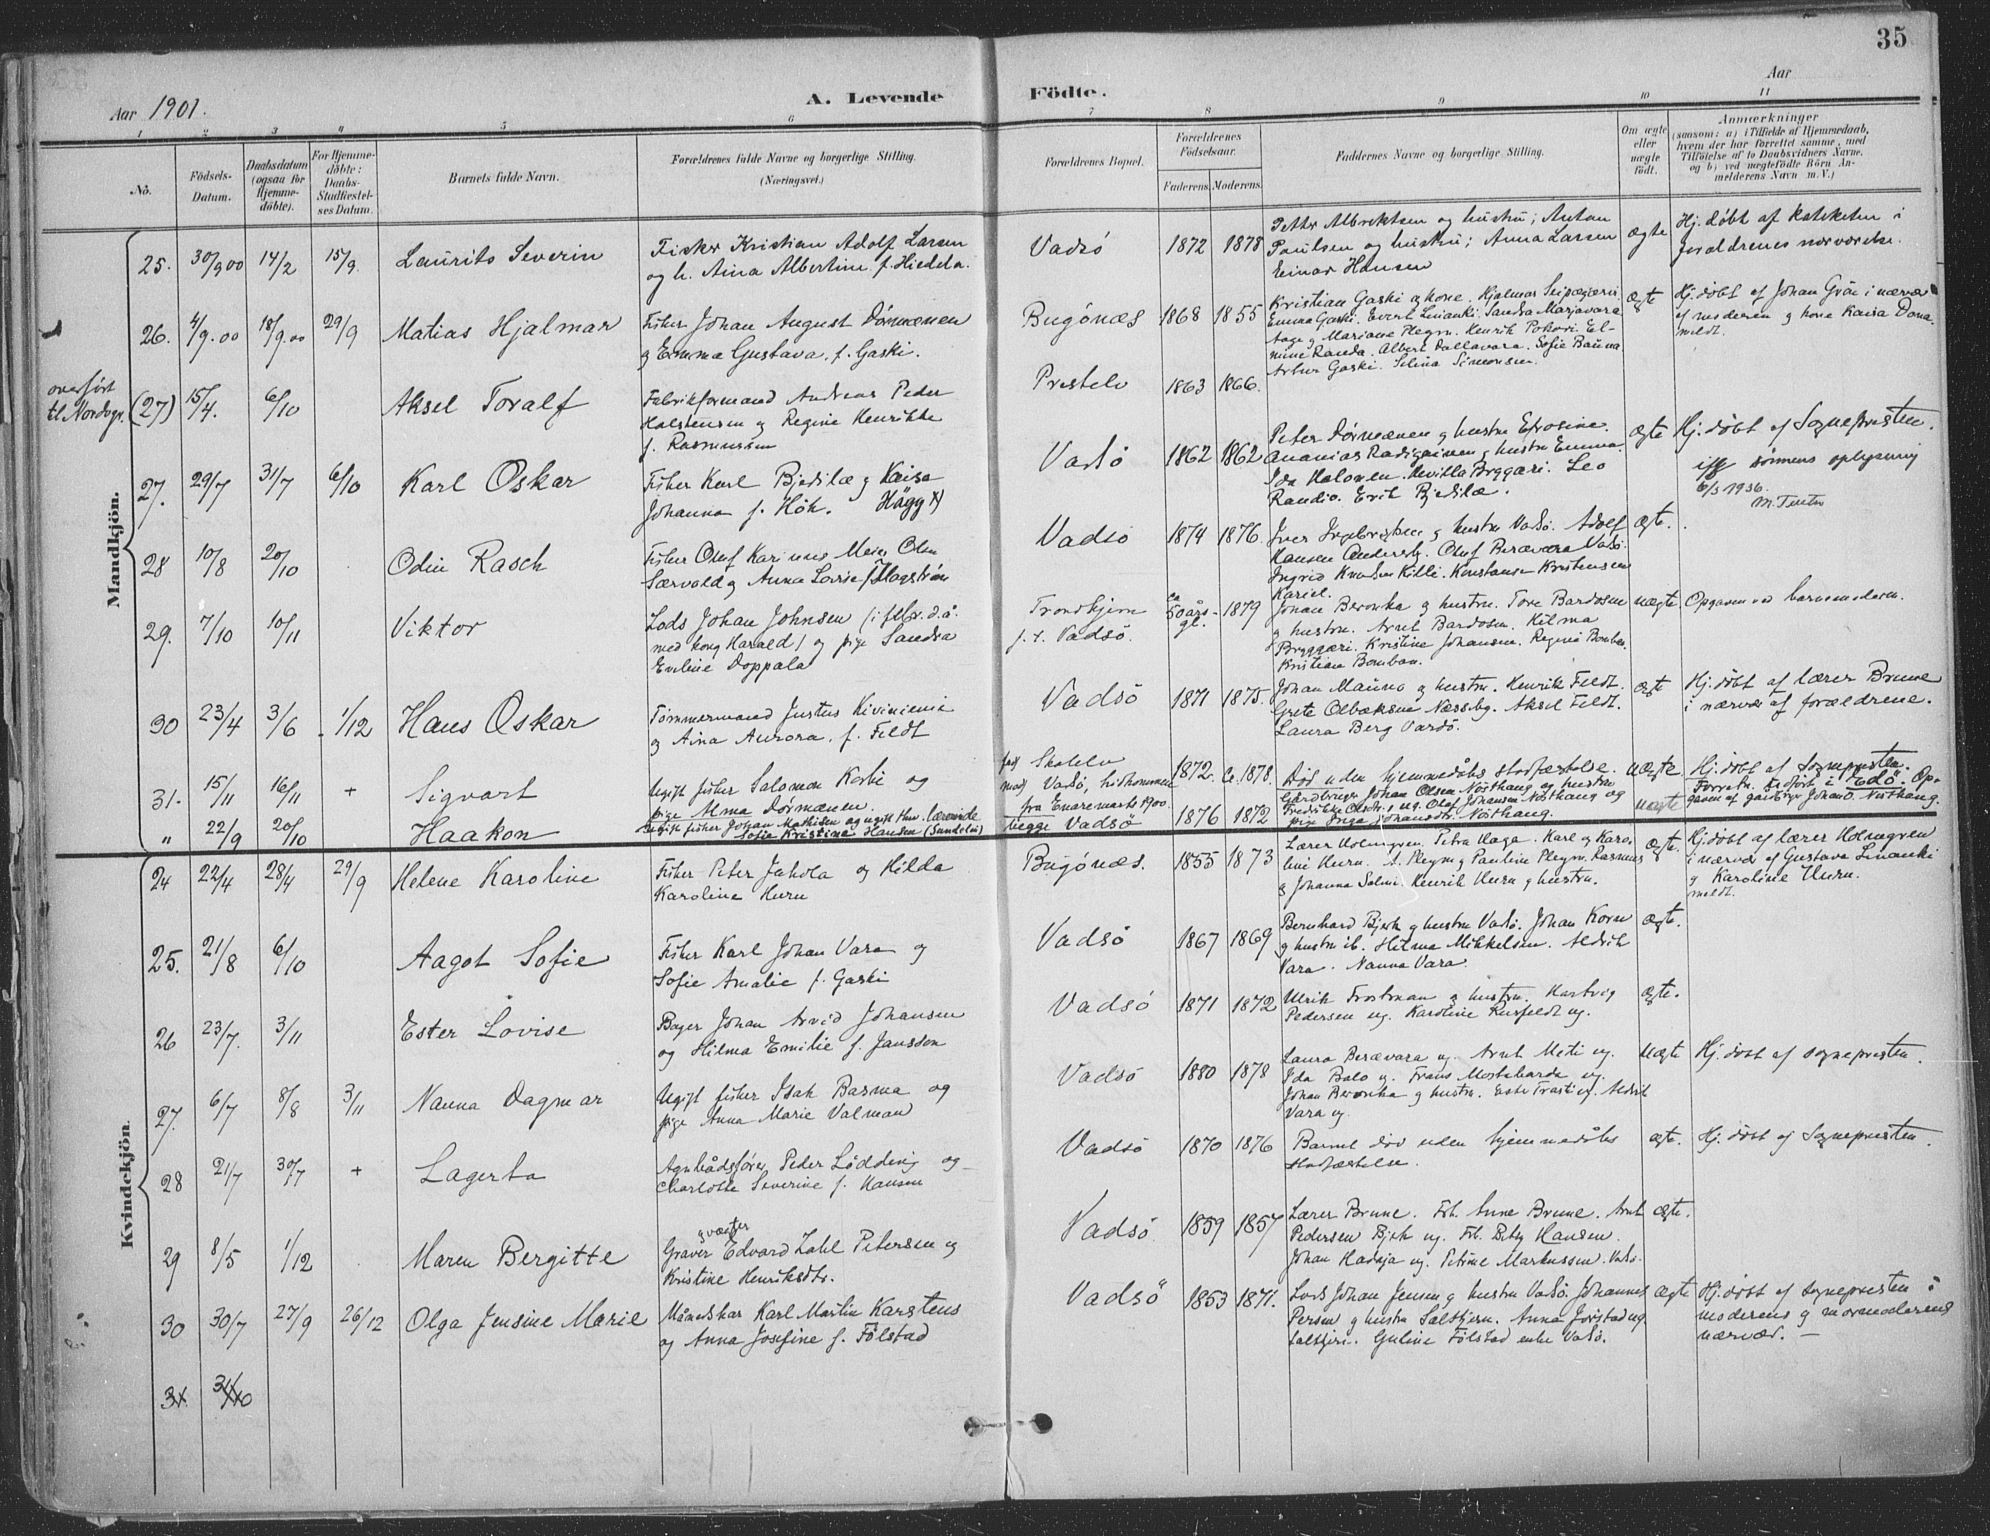 35
Aar 1901.
A. Levende
Födte.
Aar
1 2 3 4 5 6 7 8 9 10 11
No.
Födsels-
Datum.
Daabsdatum
(ogsaa for
Hjemme-
döbte).
For Hjemme-
döbte:
Daabs-
Stadfæstel-
ses Datum.
Barnets fulde Navn.
Forældrenes fulde Navne og borgerlige Stilling.
(Næringsvei.)
Forældrenes Bopæl.
Forældrenes
Födselsaar.
Faderens. Moderens.
Faddernes Navne og borgerlige Stilling.
Om ægte
eller
uægte
födt.
Anmærkninger
(saasom: a) i Tilfælde af Hjemmedaab,
hvem der har forrettet samme, med
Tilföielse af to Daabsvidners Navne,
og b) ved uægtefödte Börn An-
melderens Navn m. V.)
Mandkjön.
25. 30/9 00 14/2 15/9. Laurits Severin
Fisker Kristian Adolf Larsen
og h. Aina Albertine f. Hiedela.
Vadsö 1872 1878
Petter Albriktsen og hustru; Anton
Paulsen og hustru; Anna Larsen
Einar Hansen
ægte
Hj. döbt af kateketen i
foraldrenes nærværelse.
26. 4/9.00 18/9.00 29/9 Matias Hjalmar
Fisker Johan August Dørmænen
og Emma Gustava, f. Gaski.
Bugönæs 1868 1855
Kristian Gaski og kone. Hjalmar Seipæjærvi
Emma Gaski. Evert Linanki. Sandra Marjavara
Aage og Mariane Plegm. Henrik Pokori. El-
mine Randa. Albert Dallavara. Sofie Bauna
Artur Gaski. Selina Simonsen.
ægte
Hj. döbt af Johan Gröi i nærvær
af moderen og kone Kaisa Dona.
meldt.
overført
til Nordvgr.
(27) 15/4. 6/10 Aksel Toralf
Fabrikformand Andreas Peder
Halstensen og Regine Henrikke
f. Rasmussen
Prestelv 1863 1866.
27. 29/7 31/7 6/10 Karl Oskar
Fisker Karl Bjedilæ og Kaisa
Johanna f. Hök. Hägg x)
Vadsö 1862 1862
Peter Dørmænen og hustru Efrosine.
Ananias Radigainen og hustru Emma.
Ida Halonen. Hevilla Bryggari. Leo
Randio. Erik Bjedilæ.
ægte
Hj. döbt af Sognepresten.
iflg sønnens oplysning
6/3 1936.
28 10/8 20/10 Odin Rasch
Fisker Oluf Karinus Meier Olsen
Særvold og Anna Lovise f. Hagström
Vadsö 1874 1876.
Iver Ingebrigtsen og hustru Vadsö. Adolf
Hansen Andersby. Oluf Beravara Vadsö.
Ingrid Knudsen Killi. Konstanse Kristensen
Kariel.
ægte.
29. 7/10 10/11 Viktor
Lods Johan Johnsen (iflg. d.å.
med kong Harald) og pige Sandra
Eveline Doppala
Trondhjem
f. t. Vadsö.
ca
50 års-
gl. 1879
Johan Beronka og hustru. Tore Bardosen
og hustru. Arnt Bardosen. Hilma
Bryggæri. Kristine Johansen. Regine Bomban.
Kristian Bomban.
uægte
Opgaven ved barnemoderen.
30 23/4 3/6 1/12 Hans Oskar
Tømmermand Justus Kiviniemi
og Aina Aurora, f. Feldt
Vadsö 1871 1875.
Johan Mauno og hustru. Henrik Feldt.
Grete Olbæksen Næsseby. Aksel Feldt.
Laura Berg Vardö.
ægte
Hj. döbt af lærer Brune
i nærvær af forældrene.
31. 15/11 16/11 + Sigvart
Ugift fisker Salomon Korbi og
pige Alma Dørmænen.
fad Skatelv
mod Vadsö, hidkommen
fra Enaremarks 1900.
1872. Ca. 1878.
Död uden hjemmedåbs stadfæstelse.
uægte
Hj. döbt af Sognepresten.
" 22/9 20/10 Haakon
Ugift fisker Johan Mathisen og ugift lærerinde
Sofie Kristine Hansen (Sundelin)
begge Vadsö 1876 1872
Gårdbruger Johan Olsen Nösthaug og hustru
Fredrikke Olsdtr., ug. Olaf Johansen Nösthaug og
pige Inga Johansdtr. Nösthaug.
uægte
Forretn. bedført i Vadsö. Op-
gaven af gårdbruger Johan O. Nösthaug.
Kvindekjön.
24 22/4 28/4 29/9 Helene Karoline
Fisker Peter Juhola og Hilda
Karoline Huru
Bugönæs. 1855 1873
Lærer Holmgren. Petra Haga. Karl og Karo-
line Huru. A. Plegm og Pauline Plegm. Rasmus
og Johanna Salmi. Henrik Huru og hustru.
ægte.
Hj. döbt af lærer Holmgren
i nærvær af Gustava Linanki
og Karoline Huru.
meldt.
25. 21/8 6/10 Aagot Sofie
Fisker Karl Johan Vara og
Sofie Amalie f. Gaski
Vadsö 1867 1869
Bernhard Bjerk og hustru Vadsö. Johan Korva
og hustru ib. Hilma Mikkelsen. Aldrik
Vara. Nanna Vara.
ægte.
26 23/7. 3/11 Ester Lovise
Bager Johan Arvid Johansen
og Hilma Emilie f. Jansson
Vadsö 1871 1872
Ulrik Trostman og hustru. Hartvig
Pedersen ug. Karoline Rusfeldt ug.
ægte.
27. 6/7 8/8 3/11 Nanna Dagmar
Ugift fisker Isak Basma og
pige Anna Marie Valman
Vadsö 1880 1878
Laura Beravara ug. Arnt Meti ug.
Ida Balo ug. Frans Mostaharda ug.
Johan Beronka og hustru. Enke Trasti ug. Aldrik
Vara ug.
Uægte
Hj. döbt af sognepresten.
28 21/7 30/7 + Lagerta
Agnbådsfører Peder Lødding og
Charlotte Severine f. Hansen
Vadsö 1870 1876
Barnet död uden hjemmedåbs
stadfæstelse.
ægte.
Hj. döbt af Sognepresten.
29 8/5 1/12 Maren Bergitte
Graver Edvard Zahl Petersen og
Kristine Henriksdtr.
Vadsö 1859 1857
Lærer Brune. Frk. Anne Brune. Arnt
Pedersen Bjerk ug. Frk. Betzy Hansen.
Johan Hadaja ug. Petrine Markussen. Vadsö.
ægte.
30 30/7 27/9 26/12 Olga Jensine Marie
Månedskar Karl Martin Karstens
og Anna Josefine f. Følstad
Vadsö 1853 1871.
Lods Johan Jensen og hustru Vadsö. Johannes
Persen og hustru Saltkjern. Anna Jovstad ug
Saltkjern. Guline Følstad enke Vadsö.
ægte
Hj. döbt af sognepresten i
moderens og mormoderens
nærvær. —
31. 31/10